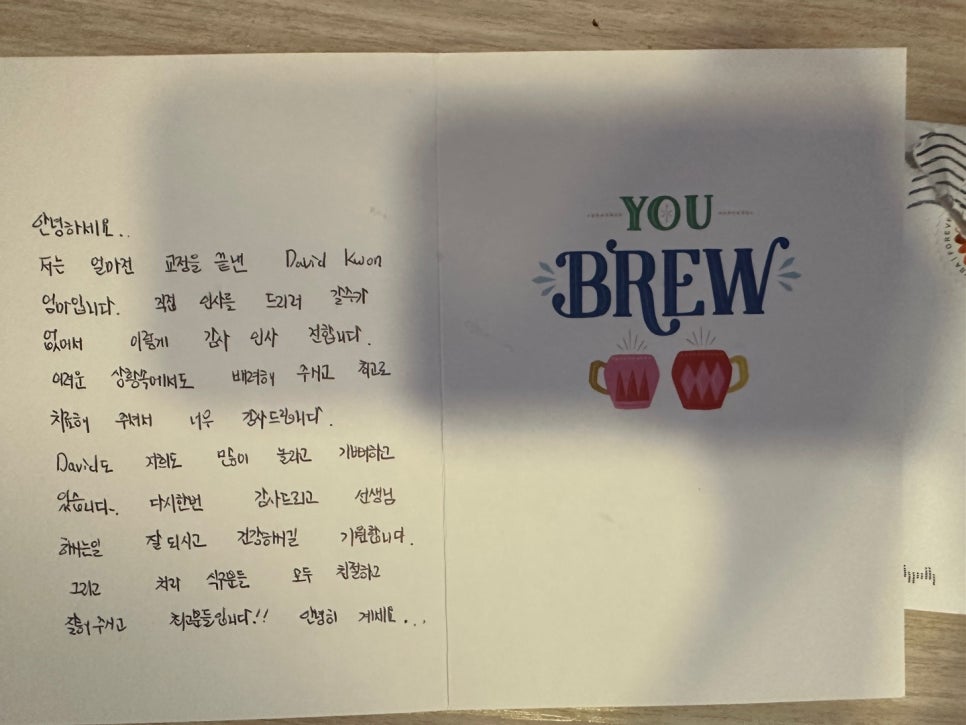 안녕하세요..
저는 얼마전 교정을 끝낸 David Kwon
엄마입니다. 직접 인사를 드리러 갈수가
없어서 이렇게 감사 인사 전합니다.
어려운 상황속에서도 배려해 주시고 최고로
치료해 주셔서 너무 감사드립니다.
David도 저희도 많이 놀라고 기뻐하고
있습니다. 다시한번 감사드리고 선생님
하시는일 잘 되시고 건강하시길 기원합니다.
그리고 치과 식구분들 모두 친절하고
잘해주시고 최고분들입니다!! 안녕히 계세요...
YOU
BREW